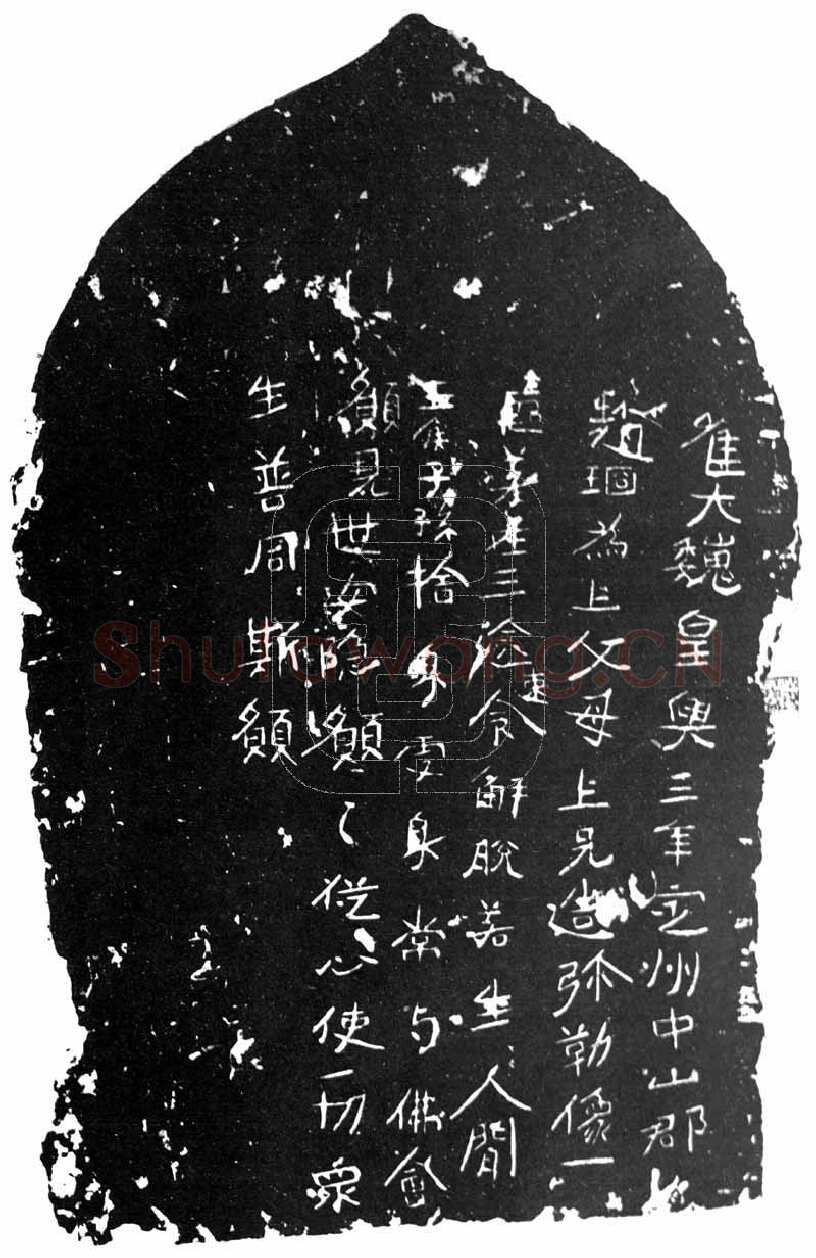 隹大巍皇興三年定州中山郡
趙珚為上父母上兄造弥勒像一
區離三塗速令解脫若生人間
王侯子孫捨身受身常与佛會
願見世安隱願〻從心使一切衆
生普同斯願
Shufawang.CN